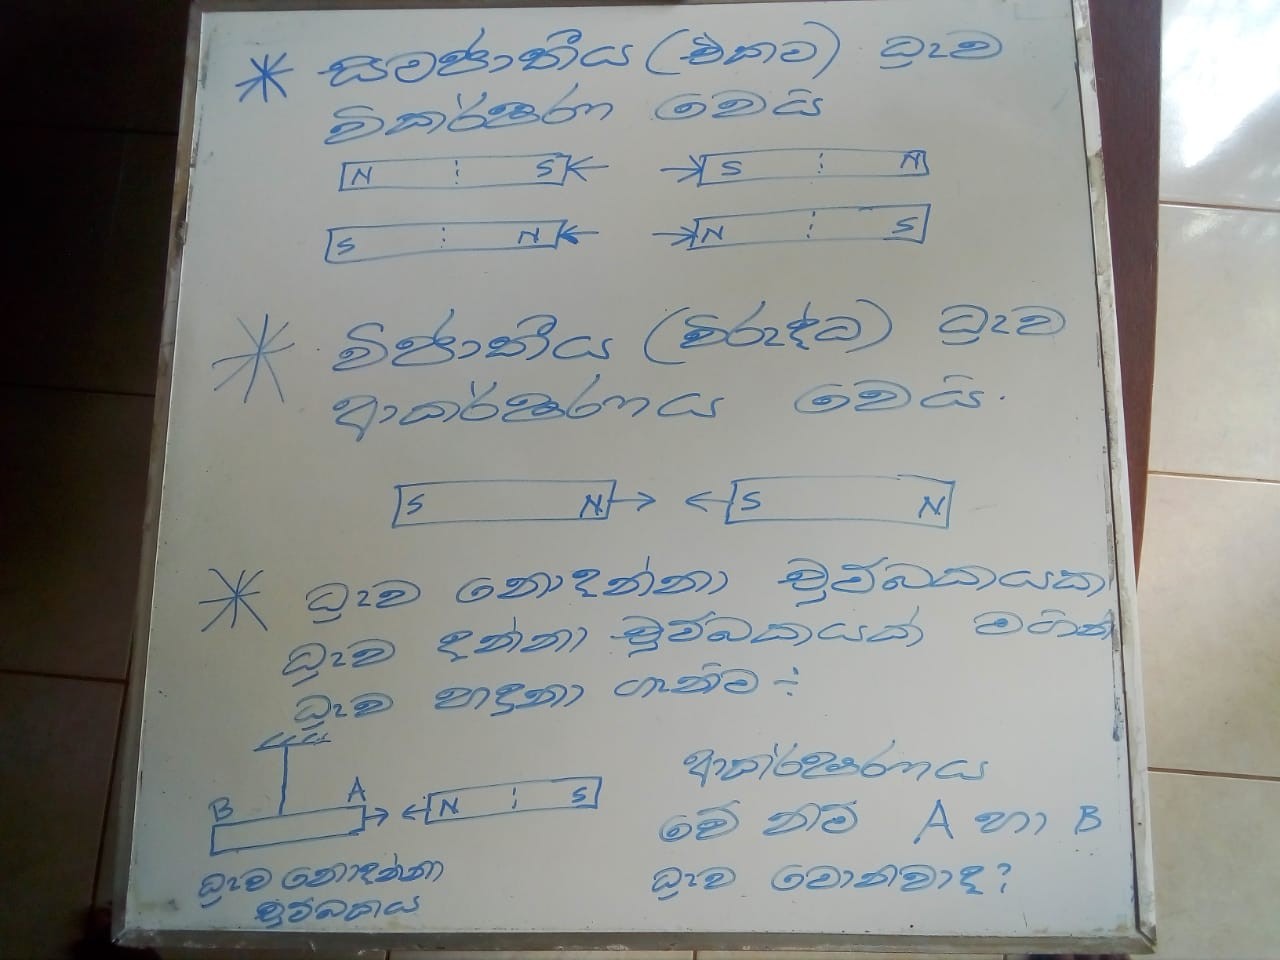 * සමජාතීය (එකම) ධ්‍රැව
විකර්ෂණ වෙයි
N S S N
S N N S
* විජාතීය (විරුද්ධ) ධ්‍රැව
ආකර්ෂණය වෙයි.
S N S N
* ධ්‍රැව නොදන්නා චුම්බකයක
ධ්‍රැව දන්නා චුම්බකයක් මගින්
ධ්‍රැව හඳුනා ගැනීම :-
B A N S
ධ්‍රැව නොදන්නා
චුම්බකය
ආකර්ෂණය
වේ නම් A හා B
ධ්‍රැව මොනවාද?